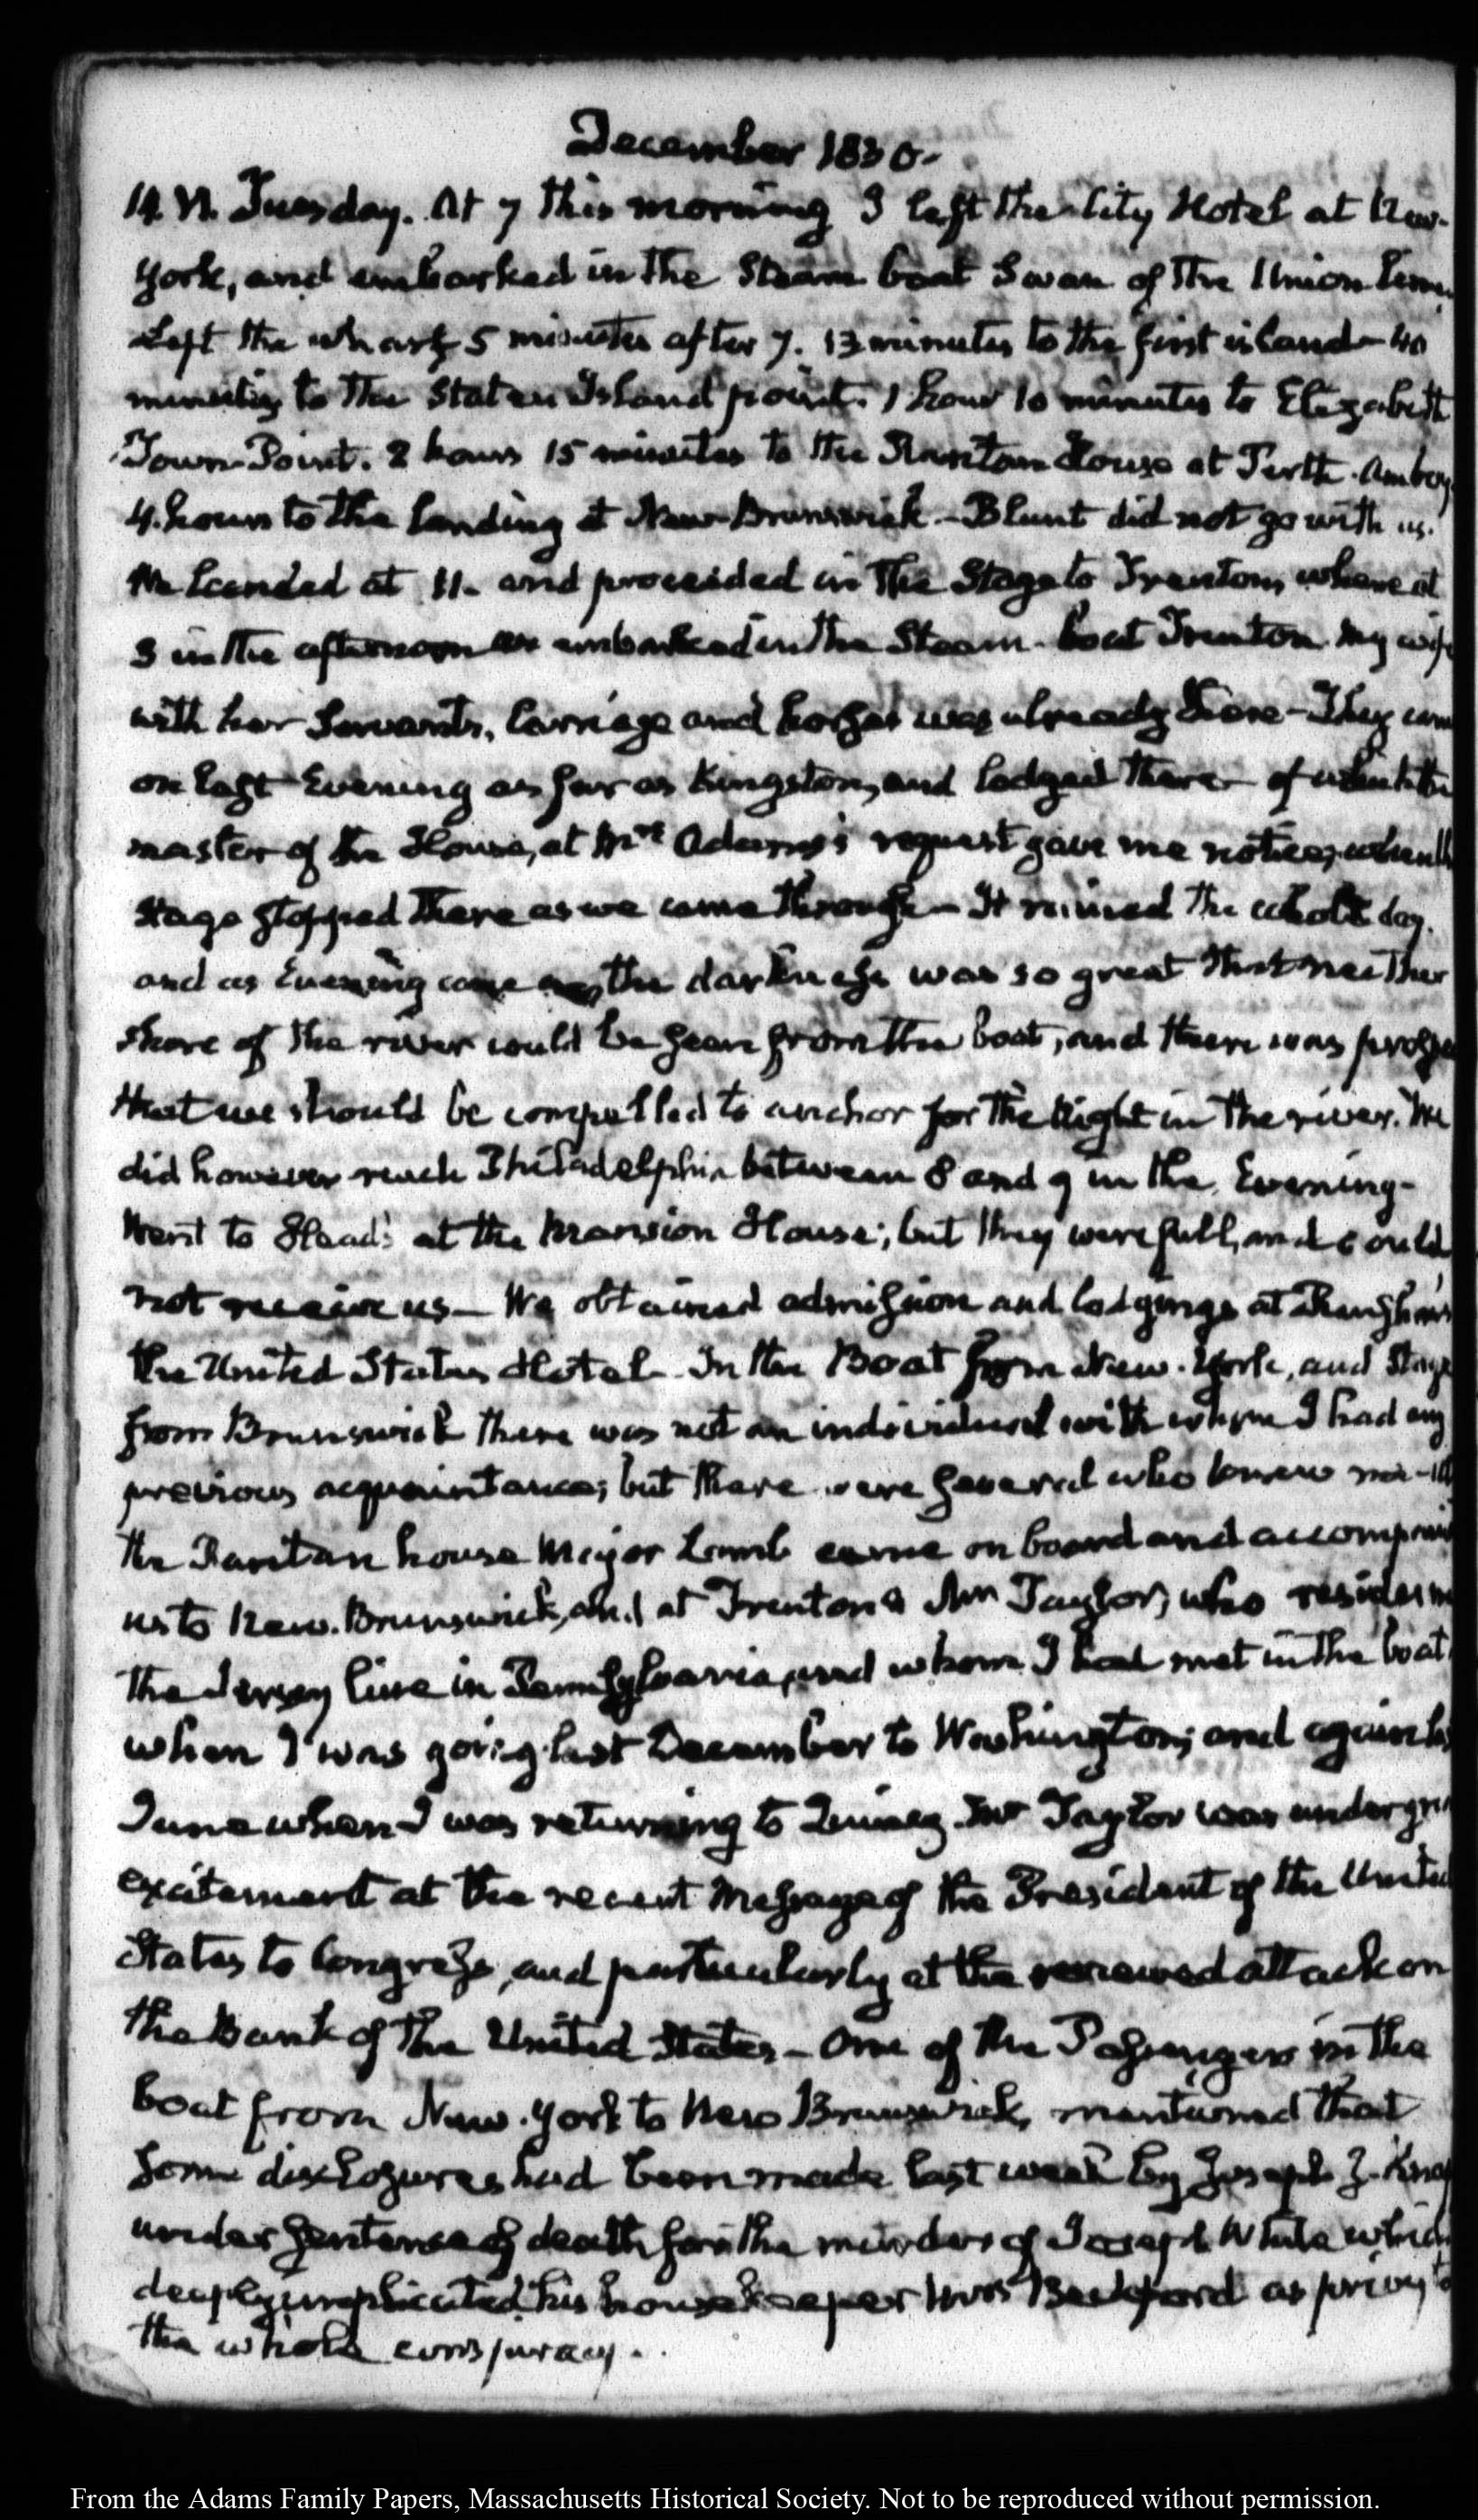 December 1830.
14. VI. Tuesday. At 7 this morning I left the City Hotel at New-
York, and embarked in the Steam boat Swan of the Union Line.
Left the wharf 5 minutes after 7. 13 minutes to the first island - 40
minutes to the Staten Island point. 1 hour 10 minutes to Elizabeth
Town Point. 2 hours 15 minutes to the Raritan House at Perth-Amboy
4. hours to the landing at New-Brunswick - Blunt did not go with us.
We landed at 11. and proceeded in the Stage to Trenton, where at
3 in the afternoon we embarked in the Steam-boat Trenton. My wife
with her Servants, Carriage and horses was already there - They came
on last Evening as far as Kingston, and lodged there - of which the
master of the House, at Mrs Adams's request gave me notice, when the
Stage stopped there as we came through - It rained the whole day.
and as Evening came on, the darkness was so great that neither
shore of the river could be seen from the boat, and there was
that we should be compelled to anchor for the Night in the river. We
did however reach Philadelphia between 8 and 9 in the Evening-
Went to Head's at the Mansion House; but they were full, and could
not receive us - We obtained admission and lodgings at
the United States Hotel. In the Boat from New-York, and Stage
from Brunswick there was not an individual with whom I had any
previous acquaintance; but there were several who knew me - At
the Raritan house Major Lomb came on board and accompanied
us to New-Brunswick, and at Trenton a Mr Taylor, who resides
the Jersey line in Pennsylvania, and whom I had met in the boat
when I was going last December to Washington; and again
June when I was returning to Quincy. Mr Taylor was under great
excitement at the recent Message of the President of the United
States to Congress, and particularly at the renewed attack on
the Bank of the United States - One of the Passengers in the
boat from New-York to New Brunswick, mentioned that
some disclosures had been made last week by Joseph J. Knapp
under sentence of death for the murder of Joseph White which
deeply implicated his housekeeper Mrs Beckford as privy to
the whole conspiracy.
From the Adams Family Papers, Massachusetts Historical Society. Not to be reproduced without permission.